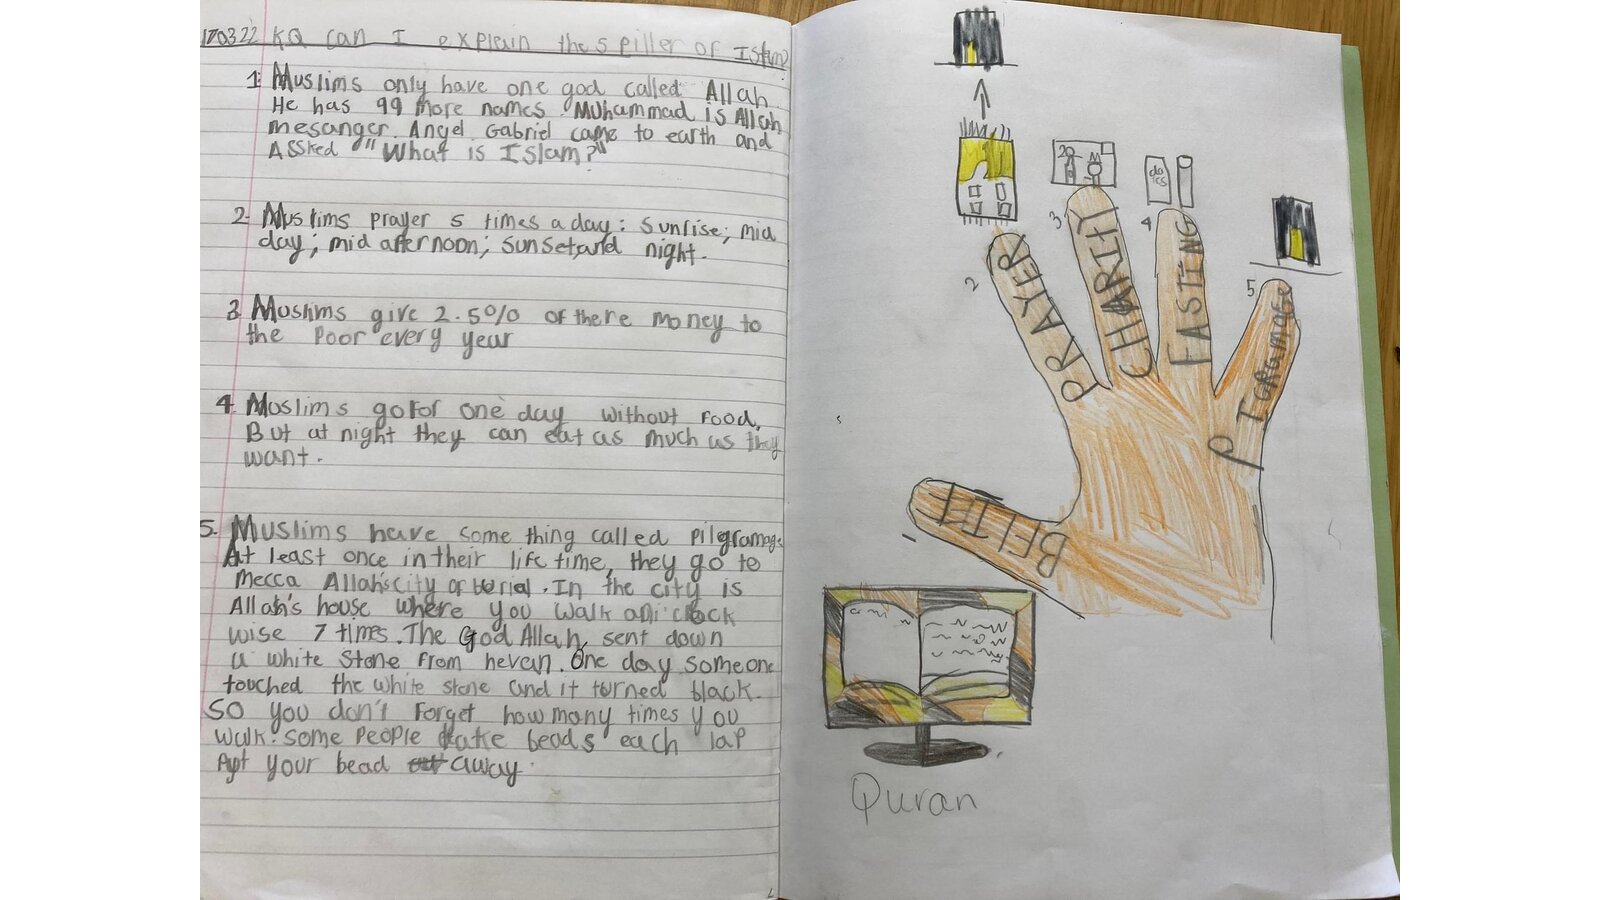 170322 KQ can I explain the 5 piller of Islam?
1. Muslims only have one god called Allah
He has 99 more names. Muhammad is Allah
mesanger. Angel Gabriel came to earth and
Assked "What is Islam?"
2. Muslims prayer 5 times a day: sunrise; mid
day; mid afternoon; sunset and night.
3 Muslims give 2.5% of there money to
the poor every year
4. Muslims go for one day without food,
But at night they can eat as much us they
want.
5. Muslims have some thing called pilgramage
At least once in their life time, they go to
mecca Allah's city of
In the city is
Allah's house where you walk anti clock
wise 7 times. The God Allah, sent down
a white stone from hevan. One day someone
touched the white stone and it turned black.
SO you don't forget how many times you
walk. some people take beads each lap
put your bead away.
2
PRAYER
3
20
CHARITY
4
dates
FASTING
5
PIGRAMAGE
BELIEF
Quran